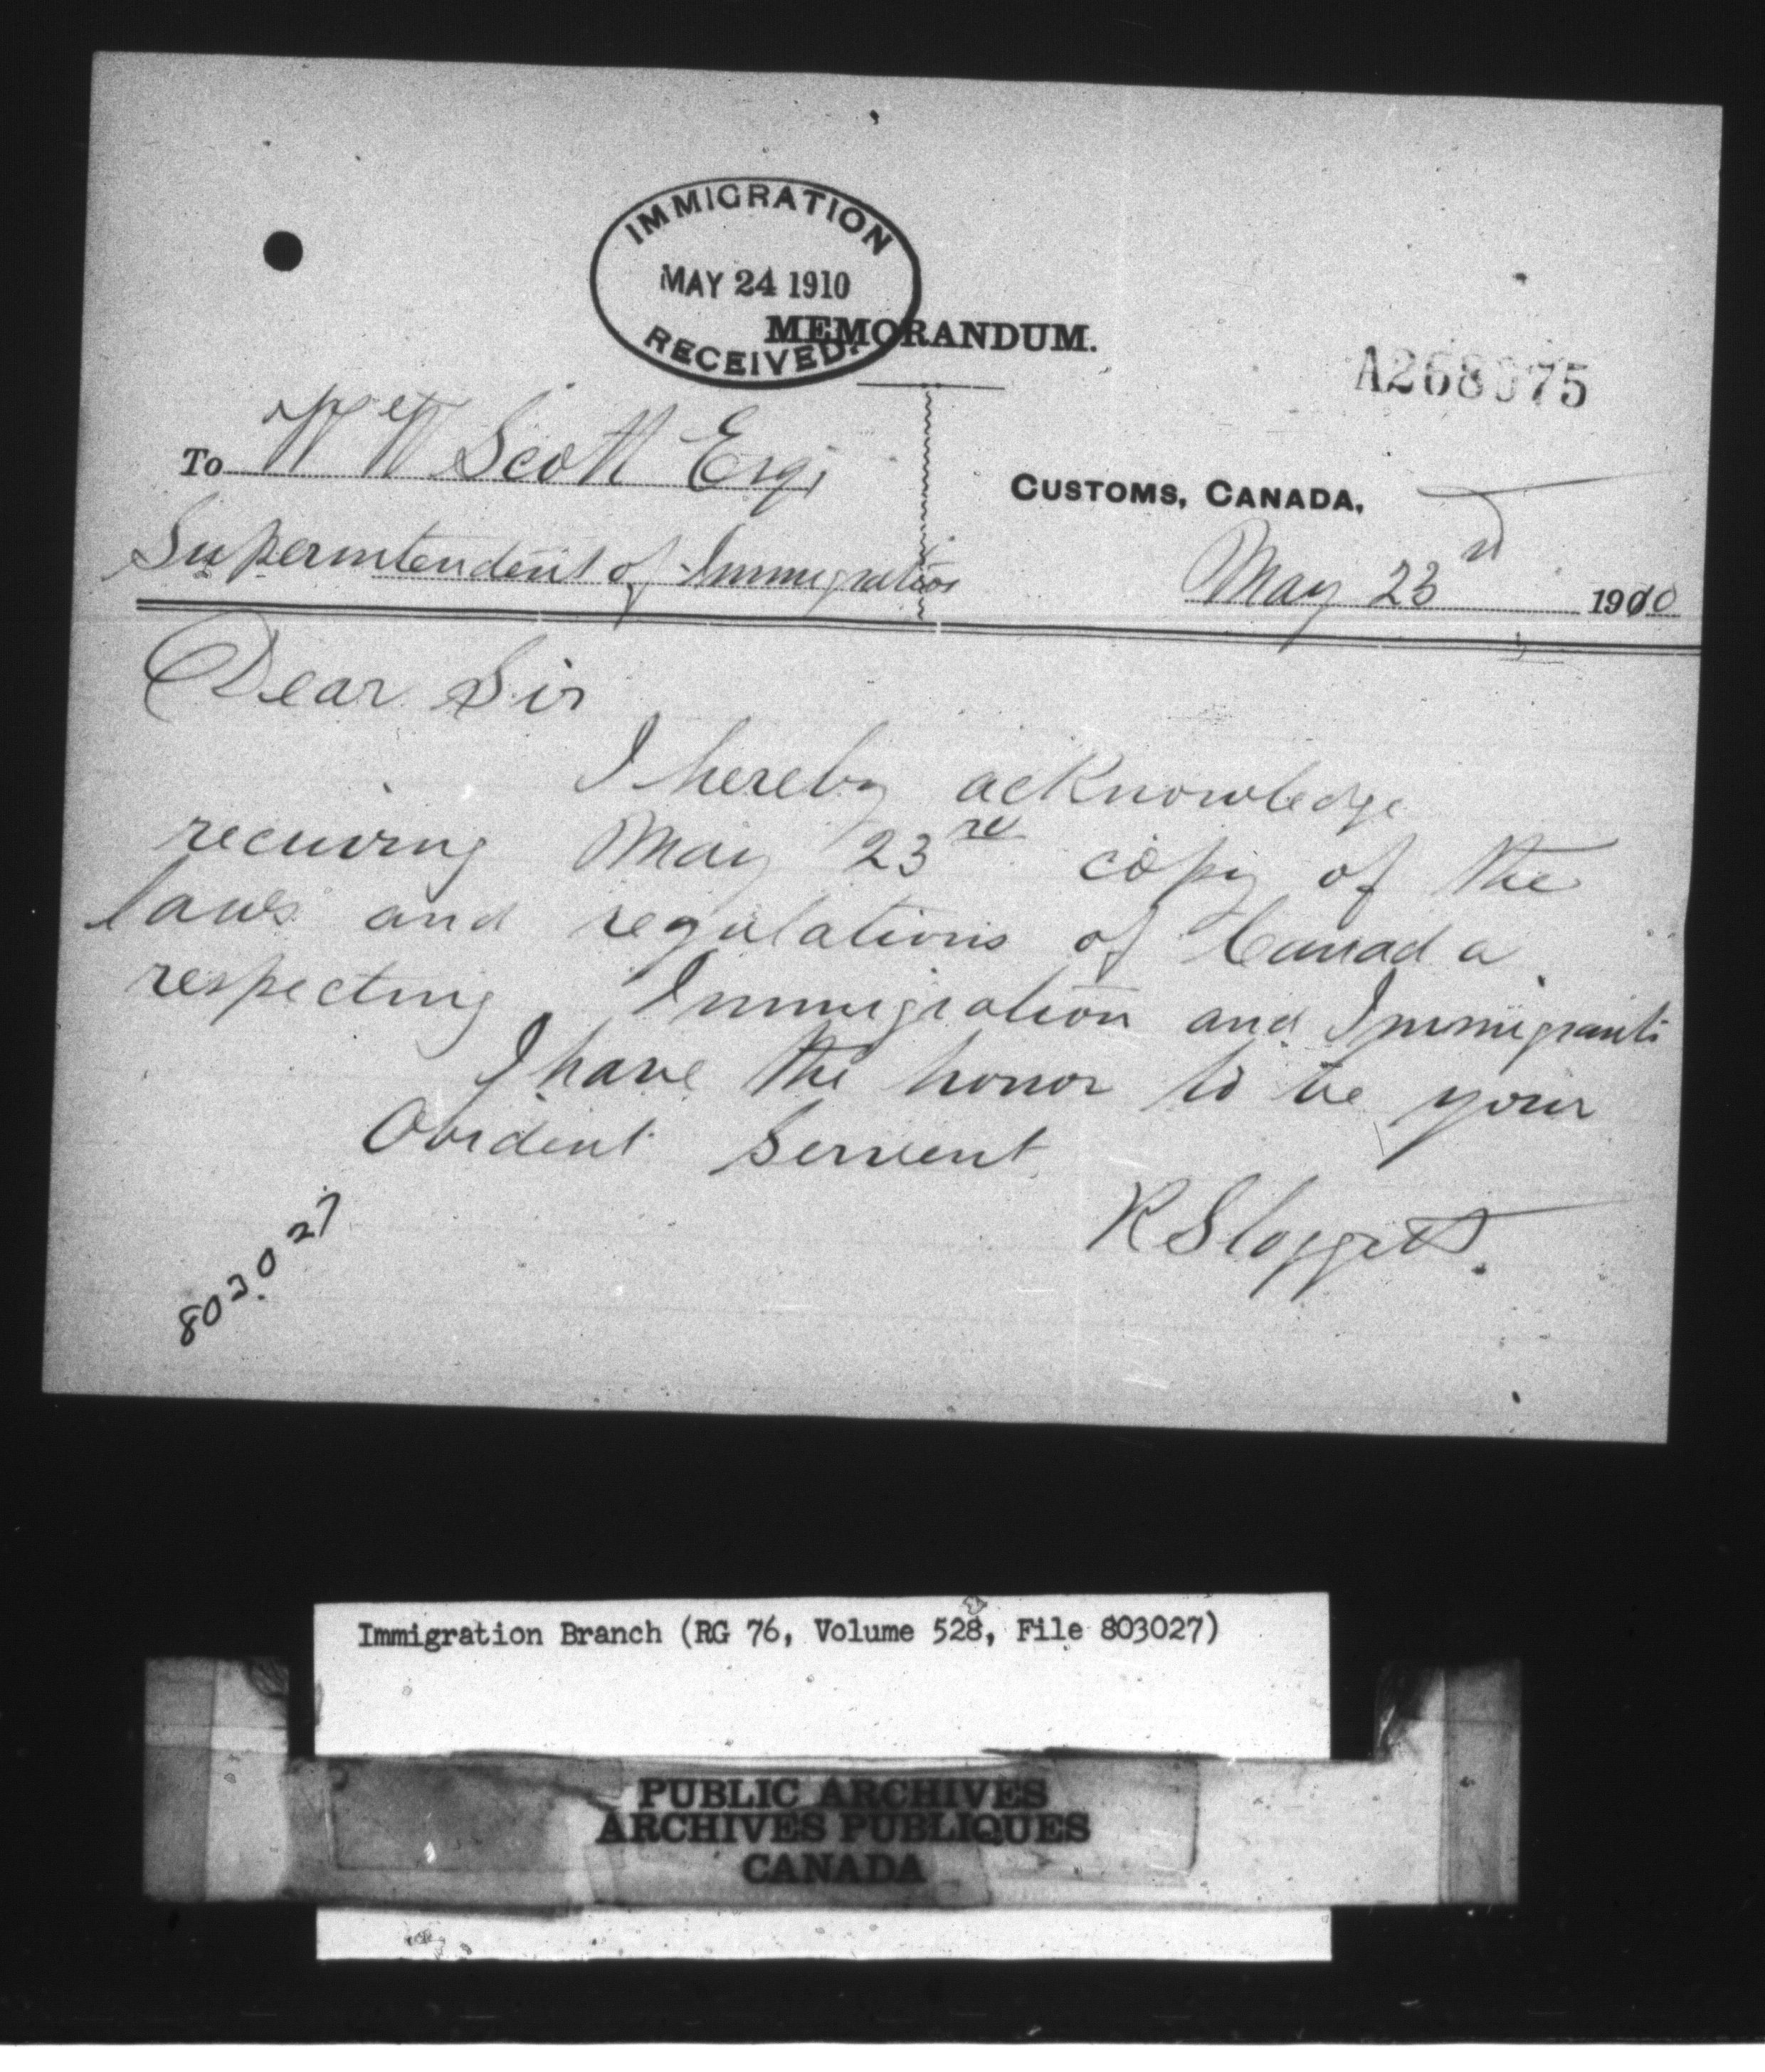 IMMIGRATION
MAY 24 1910
RECEIVED.
MEMORANDUM.
A268975
To W W Scott Esq,
Superintendent of Immigration
CUSTOMS, CANADA,
May 23rd 1910
Dear Sir
I hereby acknowledge
recieving May 23rd copy of the
laws and regulations of Canada
respecting Immigration and Immigrants
I have the honor to be your
Obident Servent
R Sloggett.
803027
Immigration Branch (RG 76, Volume 528, File 803027)
PUBLIC ARCHIVES
ARCHIVES PUBLIQUES
CANADA